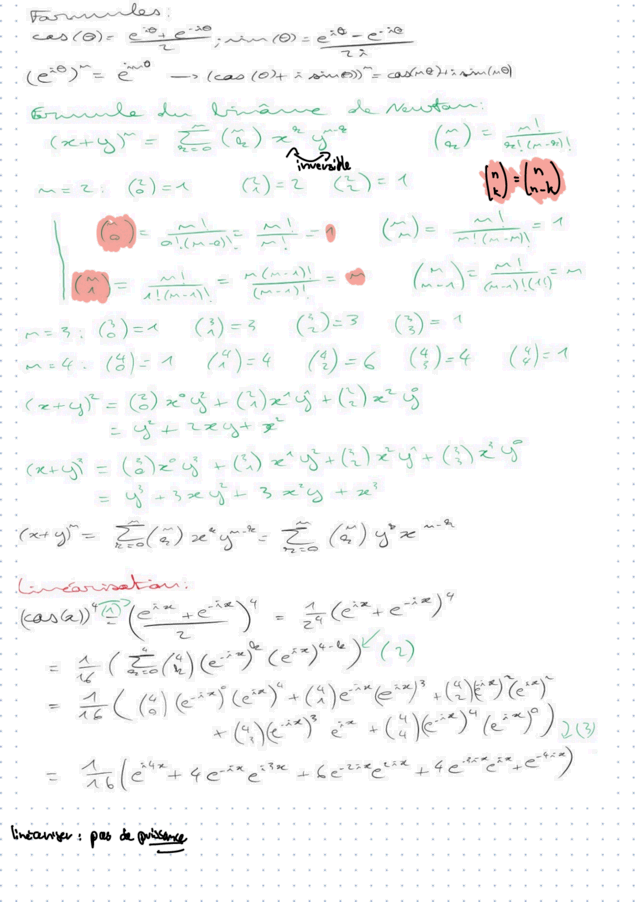 Formules:
cos(θ) = (e^{iθ} + e^{-iθ})/2 ; sin(θ) = (e^{iθ} - e^{-iθ})/(2i)
(e^{iθ})^n = e^{inθ} → (cos(θ) + i sin(θ))^n = cos(nθ) + i sin(nθ)
Formule du binôme de Newton:
(x+y)^n = Σ_{k=0}^{n} (n k) x^k y^{n-k}    (n k) = n!/(k!(n-k)!)
inversible
(n k) = (n n-k)
n = 2 : (2 0) = 1    (2 1) = 2    (2 2) = 1
(n 0) = n!/(0!(n-0)!) = n!/n! = 1    (n n) = n!/(n!(n-n)!) = 1
(n 1) = n!/(1!(n-1)!) = n(n-1)!/(n-1)! = n    (n n-1) = n!/((n-1)!(1)!) = n
n = 3 : (3 0) = 1    (3 1) = 3    (3 2) = 3    (3 3) = 1
n = 4 : (4 0) = 1    (4 1) = 4    (4 2) = 6    (4 3) = 4    (4 4) = 1
(x+y)^2 = (2 0) x^0 y^2 + (2 1) x^1 y^1 + (2 2) x^2 y^0
= y^2 + 2xy + x^2
(x+y)^3 = (3 0) x^0 y^3 + (3 1) x^1 y^2 + (3 2) x^2 y^1 + (3 3) x^3 y^0
= y^3 + 3xy^2 + 3x^2y + x^3
(x+y)^n = Σ_{k=0}^{n} (n k) x^k y^{n-k} = Σ_{k=0}^{n} (n k) y^k x^{n-k}
Linéarisation:
(cos(x))^4 =(1) ((e^{ix} + e^{-ix})/2)^4 = 1/2^4 (e^{ix} + e^{-ix})^4
= 1/16 (Σ_{k=0}^{4} (4 k) (e^{-ix})^k (e^{ix})^{4-k}) (2)
= 1/16 ((4 0) (e^{-ix})^0 (e^{ix})^4 + (4 1) e^{-ix} (e^{ix})^3 + (4 2) (e^{-ix})^2 (e^{ix})^2
+ (4 3) (e^{-ix})^3 e^{ix} + (4 4) (e^{-ix})^4 (e^{ix})^0) (3)
= 1/16 (e^{i4x} + 4e^{-ix} e^{i3x} + 6e^{-2ix} e^{2ix} + 4e^{-3ix} e^{ix} + e^{-4ix})
linéariser : pas de puissance